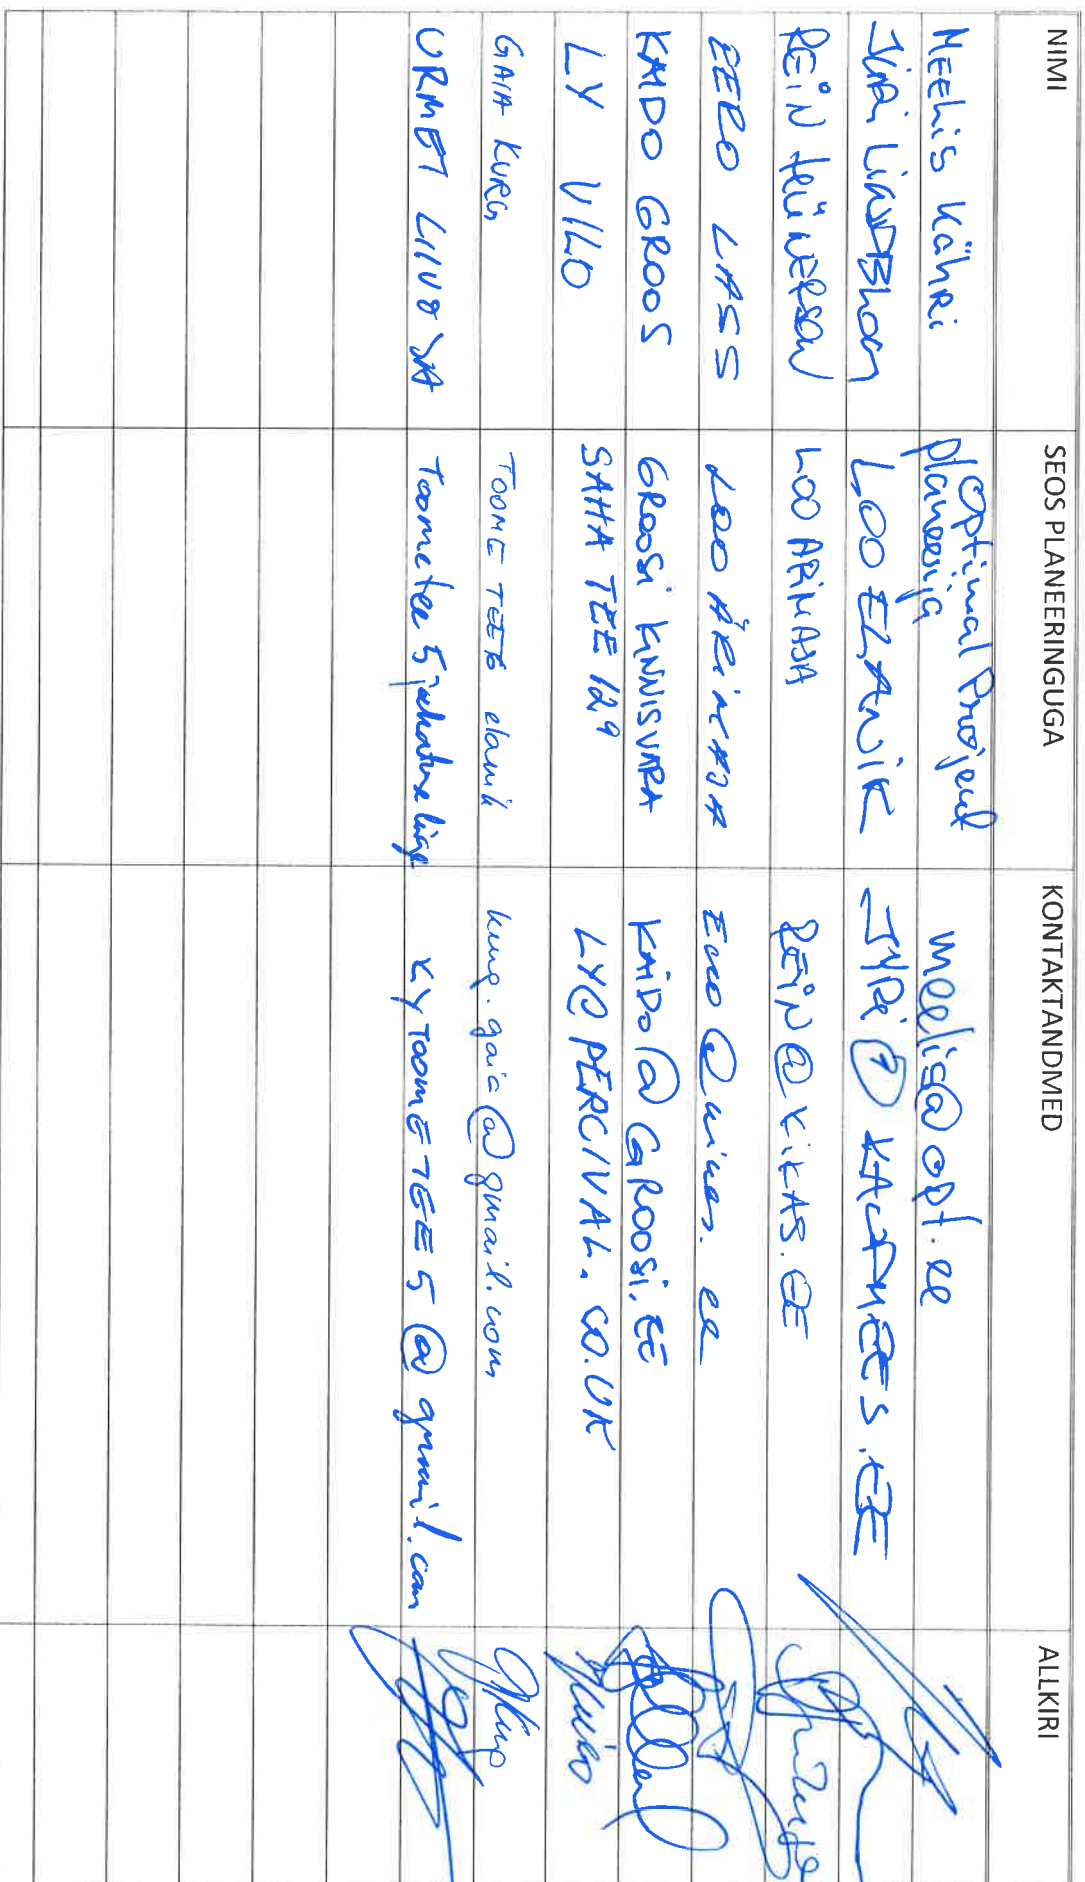 NIMI SEOS PLANEERINGUGA KONTAKTANDMED ALLKIRI
MEELIS KÄHRI Optimal Projekt planeerija meelis@opt.ee
JÜRI LOO ELANIK JYRI@KALAMEES.EE
REIN LOO ÄRIMAJA REIN@VIKAS.EE
EERO LASS LOO ÄRIMAJA
KAIDO GROOS GROOSI KINNISVARA KAIDO@GROOSI.EE
LY VILO SAHA TEE 12ª LY@PERCIVAL.CO.UK
GAIA KURG TOOME TEE elanik kurg.gaia@gmail.com
URMET LIIVOJA Toome tee 5 juhatuse liige KYTOOMETEE5@gmail.com